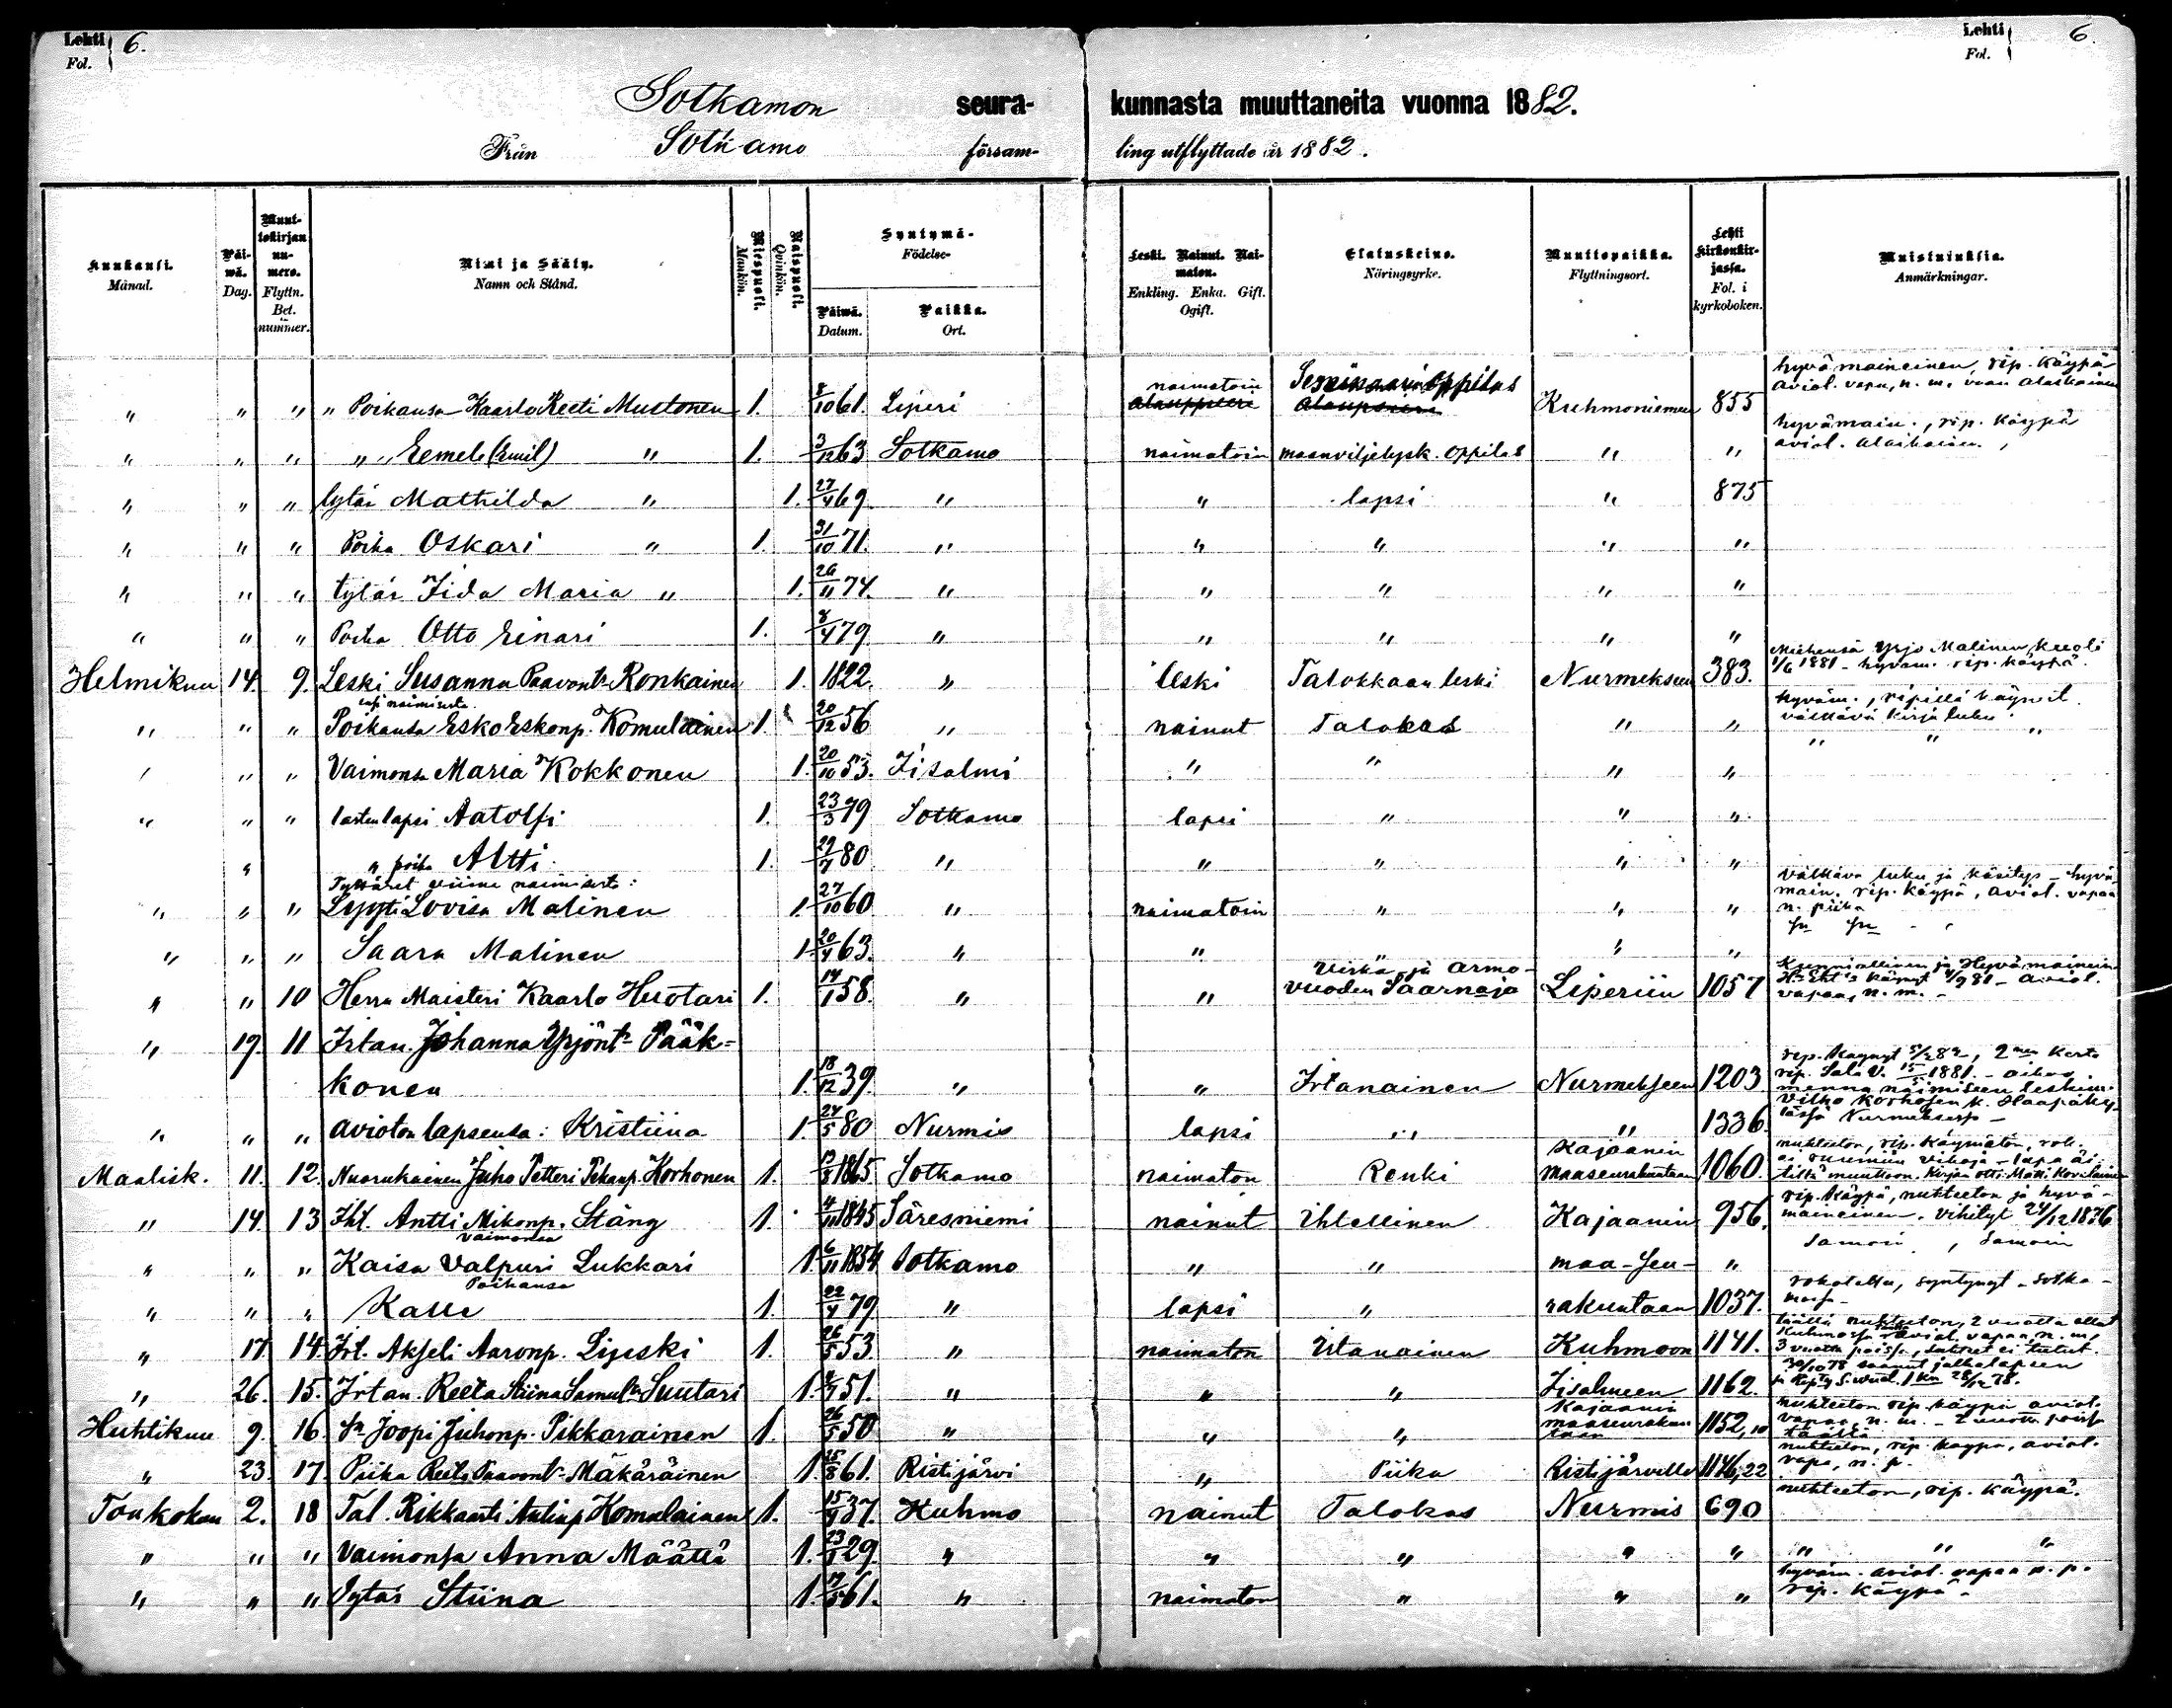 Lehti 6.
Fol.
Lehti 6.
Fol.
Sotkamon seura- kunnasta muuttaneita vuonna 1882.
Från Sotkamo försam- ling utflyttade år 1882.
Kuukausi. Månad.
Päiwä. Dag.
Muuttokirjan numero. Flyttn. Bet. nummer.
Nimi ja Sääty. Namn och Stånd.
Miespuoli. Mankön.
Naispuoli. Qvinkön.
Syntymä- Födelse-
Päiwä. Datum.
Paikka. Ort.
Leski. Nainut. Naimaton. Enkling. Enka. Gift. Ogift.
Elatuskeino. Näringsyrke.
Muuttopaikka. Flyttningsort.
Lehti kirkonkirjassa. Fol. i kyrkoboken.
Muistutuksia. Anmärkningar.
" " " " Poikansa Kaarlo Reeti Mustonen 1. 8/10 61. Liperi naimatoin Seminaarin oppilas Kuhmoniemeen 855 hyvämaineinen, rip. käypä aviol. vapa, n. m. vaan alaikainen
" " " " " Eemeli (Emil) " 1. 3/12 63 Sotkamo naimatoin maanviljelysk. oppilas " " hyvämain., rip. käypä aviol. alaikainen
" " " tytär Mathilda " 1. 27/4 69. " " lapsi " 875
" " " Poika Oskari " 1. 31/10 71. " " " " "
" " " tytär Iida Maria " 1. 26/11 74. " " " " "
" " " Poika Otto Einari 1. 8/4 79. " " " " "
Helmikuu 14. 9. Leski Susanna Paavont. Ronkainen 1. 1822. " leski Talokkaan leski Nurmekseen 383. Miehensä Yrjö Malinen kuoli 1/6 1881 - hyväm. rip. käypä.
" " " Poikansa Esko Eskonp. Komulainen 1 20/12 56 " nainut Talokas " " hyväm., ripillä käynyt. välttävä kirja luku.
" " " Vaimonsa Maria Kokkonen 1. 20/10 53. Iisalmi " " " " " " "
" " " lastenlapsi Aatolfi 1. 23/3 79 Sotkamo lapsi " " "
" " poika Altti 1. 29/7 80 " " " " "
Tyttäret viime naimisesta:
" " " Lyyti Lovisa Malinen 1. 27/10 60 " naimatoin " " " välttävä luku ja käsitys - hyvämain. rip. käypä, aviol. vapaa n. piika
" " " Saara Malinen 1. 20/4 63. " " " "
" " 10 Herra Maisteri Kaarlo Huotari 1. 14/1 58. " " Virka ja armovuoden Saarnaja Liperiin 1057 Kunniallinen ja Hyvämaineinen käynyt aviol. vapaa, n. m. -
" 19. 11 Irtan. Johanna Yrjönt. Pääk=
konen 1. 18/12 39. " " Irtanainen Nurmekseen 1203 rip. käynyt 2nen kerta rip. Sala v. 15/5 1881. - aikoo menna naimiseen leskim. Vilho Korhosen k. Haapaky-
" " " avioton lapsensa: Kristiina 1. 24/5 80 Nurmis lapsi " " 1336. lässä Nurmeksessa -
Maalisk. 11. 12. Nuorukainen Juho Petteri Pekanp. Korhonen 1. 1865. Sotkamo naimaton Renki Kajaanin maaseurakuntaan 1060. nuhteeton, rip. käymätön, rok. ei ruumiin vikoja - kirjan otti Matti Korhonen
" 14. 13 Ihl. Antti Mikonp. Stäng 1 4/11 1845 Säresniemi nainut itsellinen Kajaanin 956. rip. käypä, nuhteeton ja hyvämaineinen. vihityt 24/12 1876
vaimonsa
" " " Kaisa Valpuri Lukkari 1. 6/11 1854 Sotkamo " " maa-Seu- " Samoin, Samoin
Poikansa
" " " Kalle 1. 22/4 79 " lapsi " rakuntaan 1037. rokotettu, syntynyt Sotkamossa -
" 17. 14. Irt. Akseli Aaronp. Lipeski 1. 26/5 53 " naimaton irtanainen Kuhmoon 1141. täällä nuhteeton, 2 vuotta ollut Kuhmossa aviol. vapaa, n. m,
" 26. 15. Irtan. Reeta Stiina Samulin Suutari 1. 8/7 51. " " " Iisalmeen 1162. 30/10 78 saanut jalkalapsen
Huhtikuu 9. 16. Sa Joopi Juhonp. Pikkarainen 1. 26/5 50 " " " Kajaanin maaseurakuntaan 1152,10 nuhteeton rip. käypä aviol. vapaa, n. m. - 2 vuotta poissa täältä
" 23. 17. Piika Reeta Paavont. Mäkäräinen 1. 15/8 61. Ristijärvi " Piika Ristijärvelle 1146,22 nuhteeton, rip. käypä, aviol. vapa, n. p.
Toukokuu 2. 18 Tal. Rikkaarti Antinp. Komulainen 1. 15/9 37. Kuhmo nainut Talokas Nurmis 690 nuhteeton, rip. käypä.
" " " Vaimonsa Anna Määttä 1. 29. " " " " " " " "
" " " Tytär Stiina 1. 61. " naimaton " " " hyväm. aviol. vapaa n. p. rip. käypä -